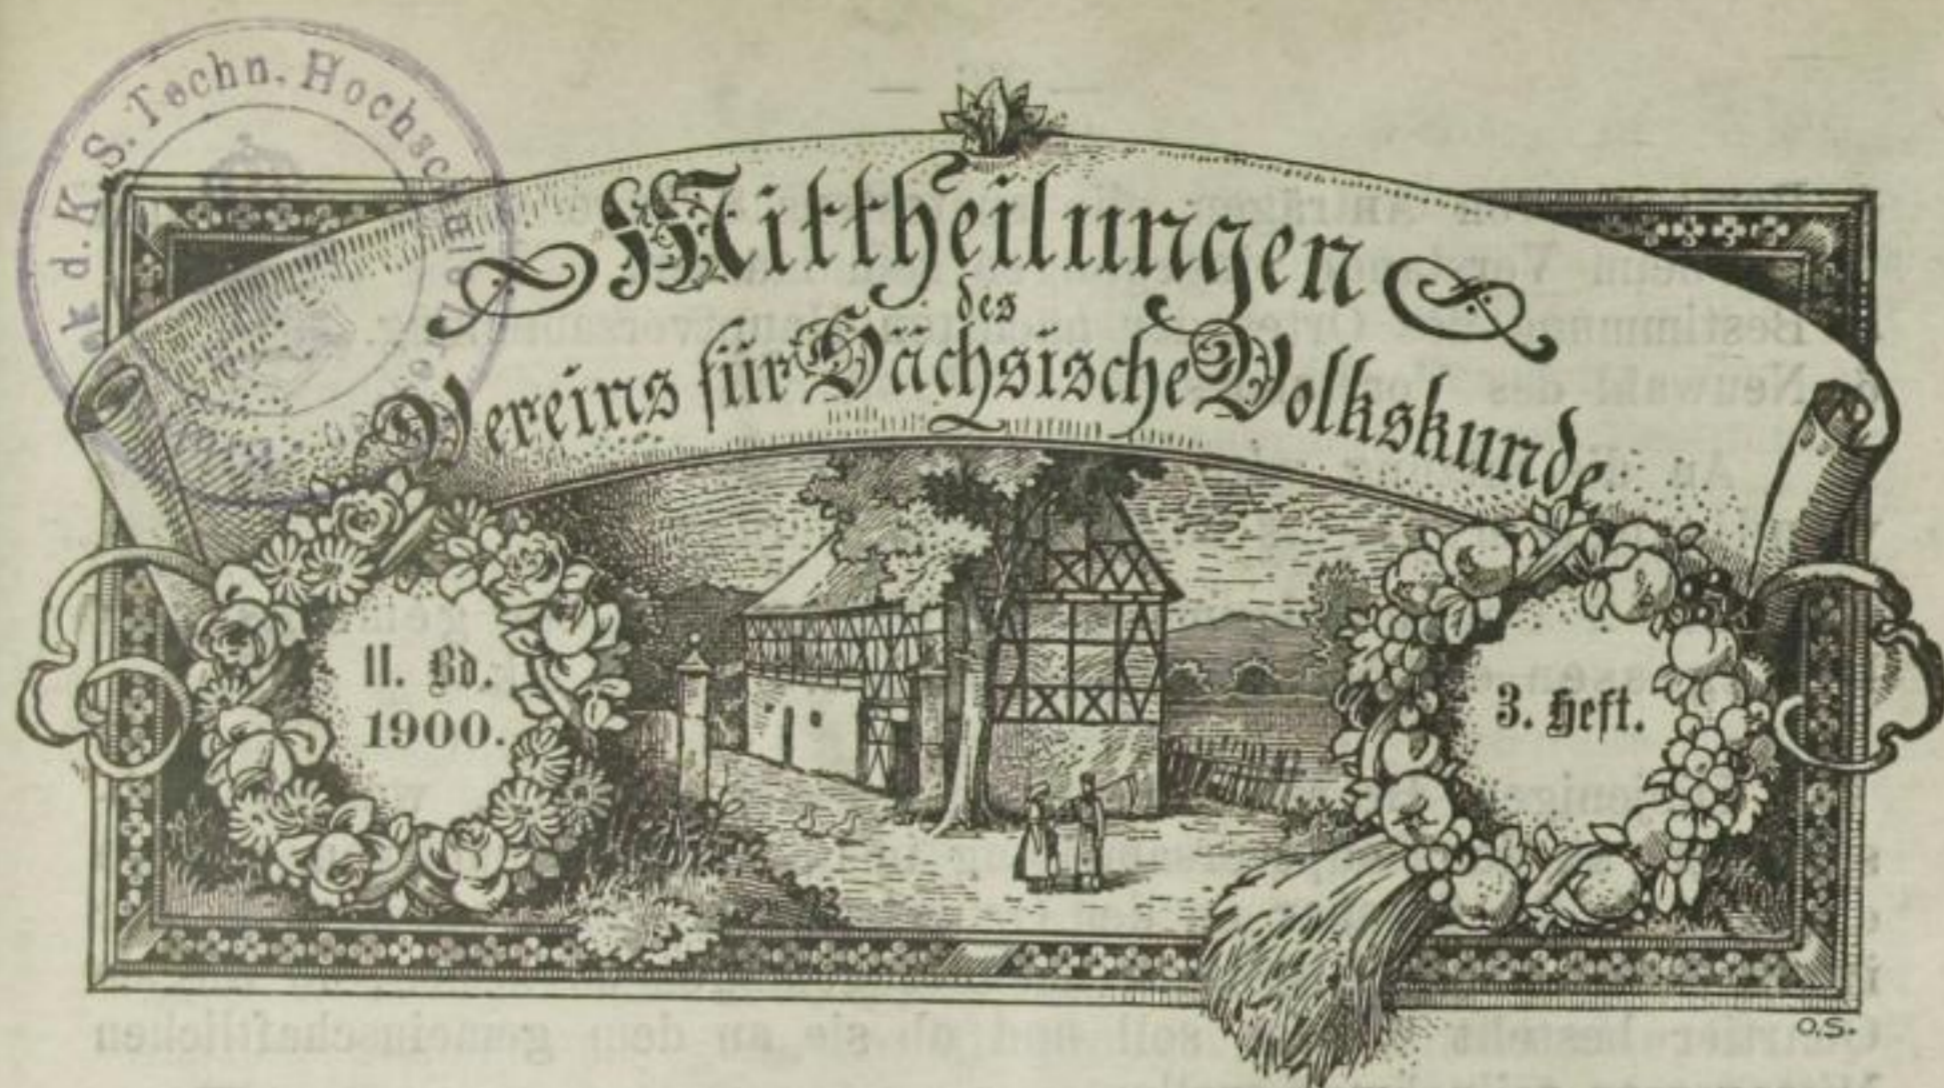 k d. K. S. Techn. Hochsc
Mittheilungen
des
Vereins für Sächsische Volkskunde
II. Bd.
1900.
3. Heft.
O.S.